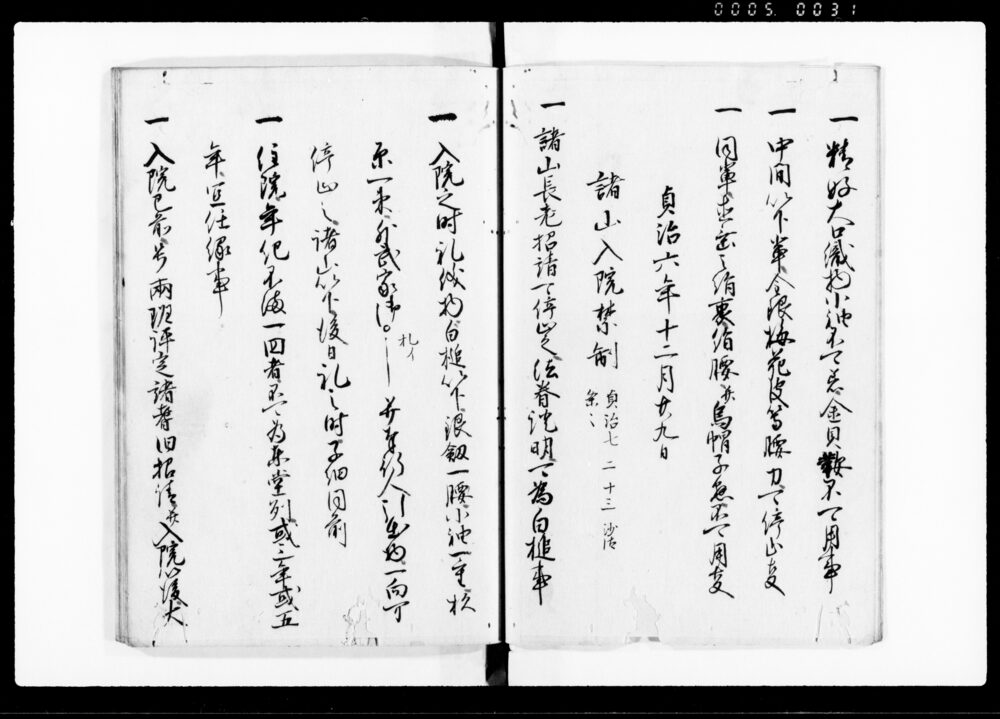 0005 0031
一 精好大口織物小袖不可着金貝鞍不可用事
一 中間以下輩金銀梅花皮等腰刀可停止事
一 同輩直垂之絹裏絹腰并烏帽子懸不可用事
貞治六年十二月廿九日
諸山入院禁制 貞治七 二 十三 沙汰
一 諸山長老招請可停止之法眷說明可為白槌事
一 入院之時礼儀物白槌以下銀釼一腰小袖一重杉
原一束 武家
札イ
并奉行人引出物一向可
停止之諸山以下後日礼之時子細同前
一 住院年紀不満一回者不可為東堂列或三年或五
年宜任緣事
一 入院已前号兩班評定諸耆旧招請并入院以後大